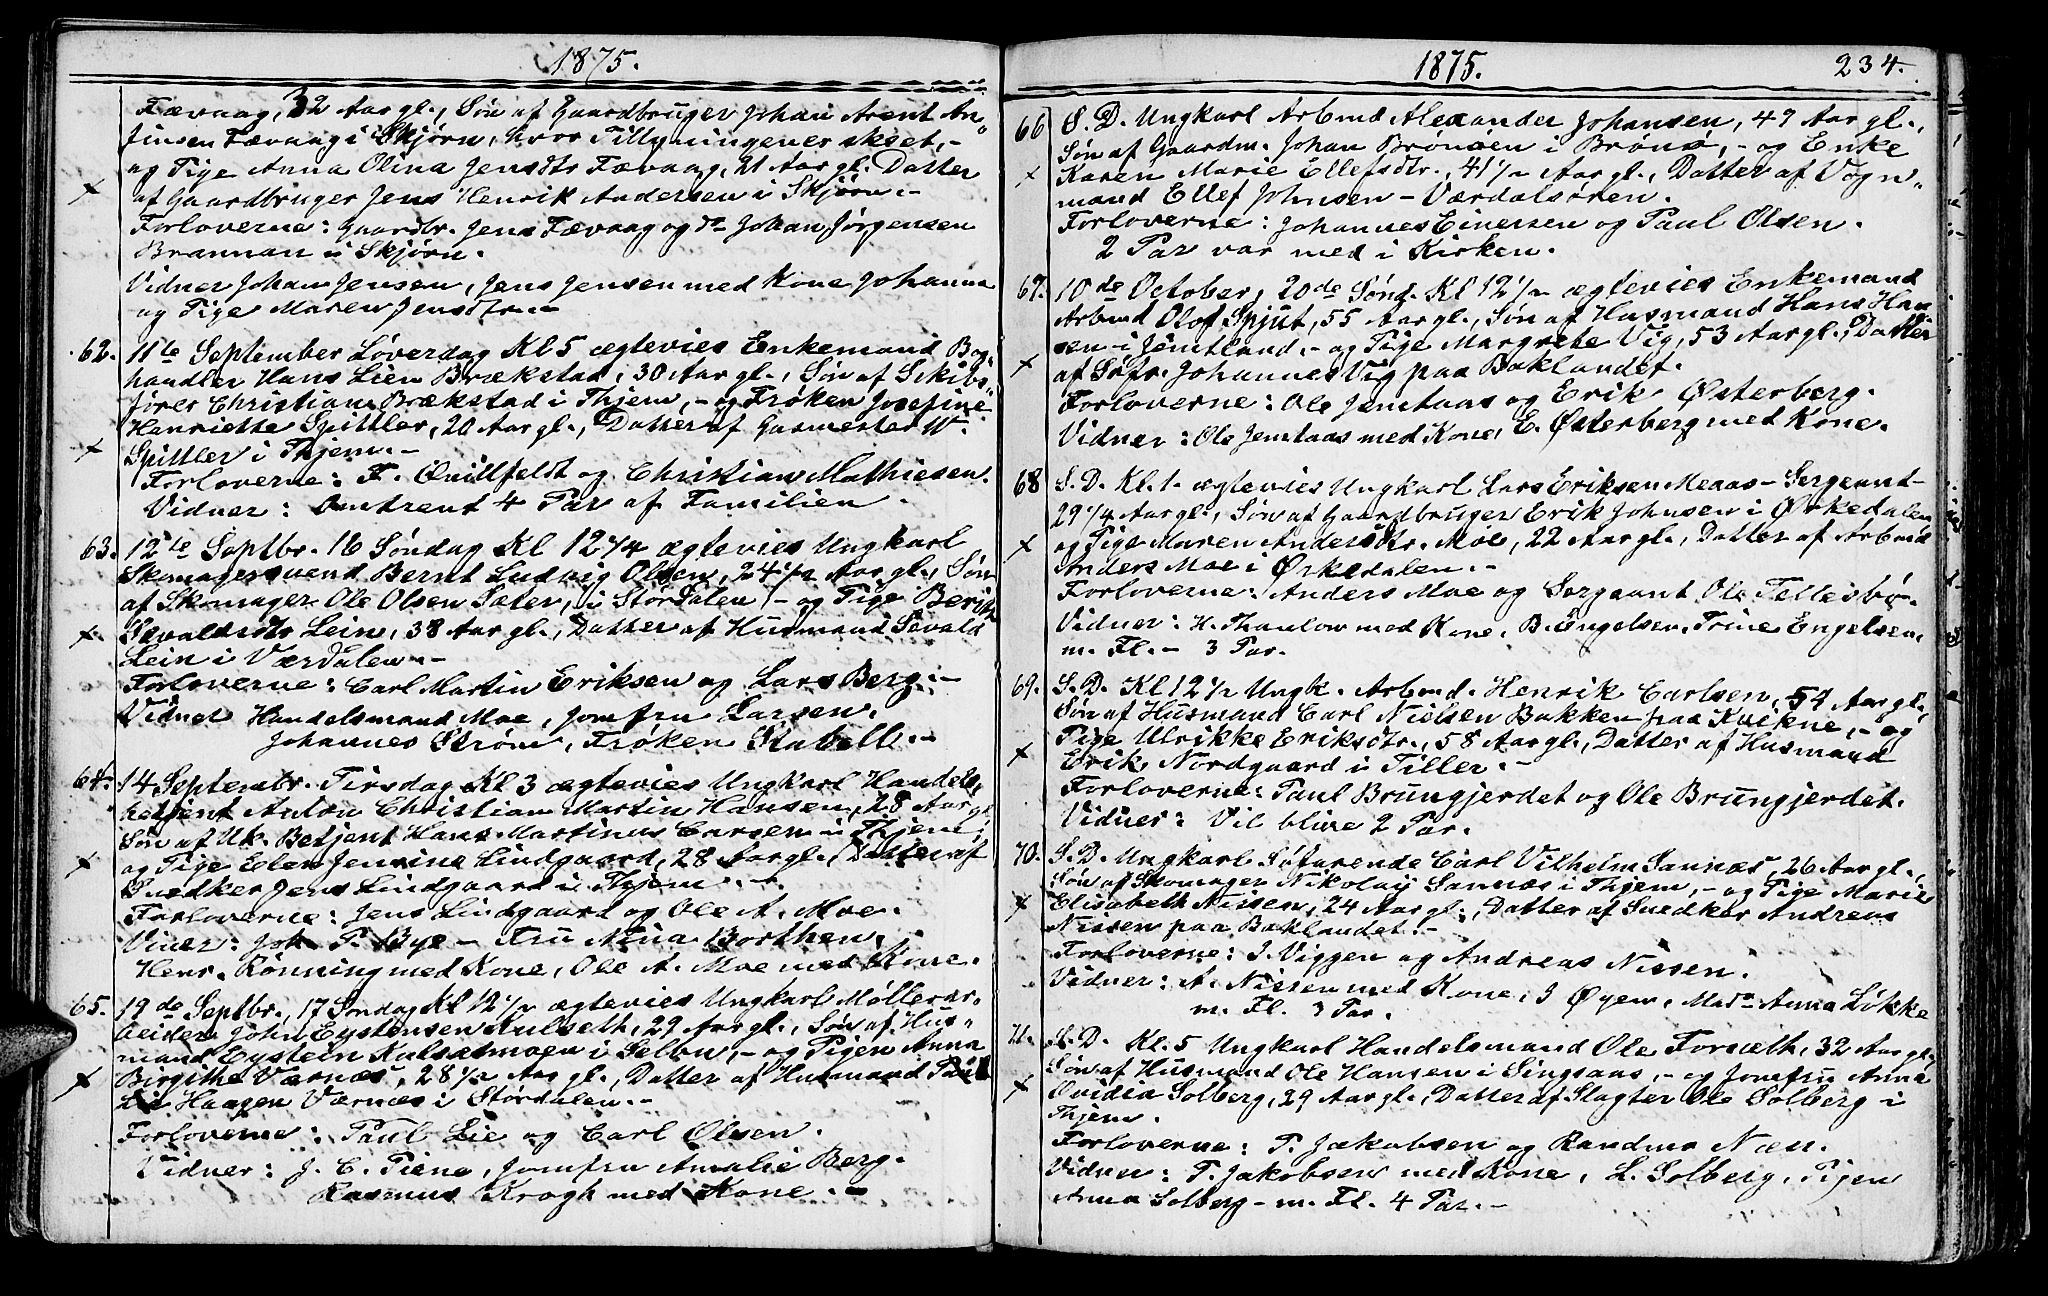 1875.
Fævaag, 32 Aar gl., Søn af Gaardbruger Johan Arent An„
finsen Fævaag i Skjørn, hvor Tillysningen er skeet, –
og Pige Anna Olina Jensdtr Fævaag, 21 Aar gl. Datter
af Gaardbruger Jens Henrik Andersen i Skjørn. –
Forloverne: Gaardbr. Jens Fævaag og do Johan Jørgensen
Brannan i Skjørn.
Vidner Johan Jensen, Jens Jensen med Kone Johanna
og Pige Maren Jensdtr. –
62. 11te September Løverdag Kl 5 ægtevies Enkemand Bog„
handler Hans Lien Brækstad, 30 Aar gl., Søn af Skibs„
fører Christian Brækstad i Thjem, – og Frøken Josefine
Henriette Spittler, 20 Aar gl., Datter af Gasmester W.
Spittler i Thjem. –
Forloverne: F. Qvillfeldt og Christian Mathiesen.
Vidner: Omtrent 4 Par af Familien.
63. 12te Septbr. 16 Søndag Kl 12 1/4 ægtevies Ungkarl
Skomagersvend Bernt Ludvig Olsen, 24 1/2 Aar gl., Søn
af Skomager Ole Olsen Sater, i Størdalen, – og Pige Berith
Sevaldsdtr Lein, 38 Aar gl., Datter af Husmand Sevald
Lein i Værdalen. –
Forloverne: Carl Martin Eriksen og Lars Berg. –
Vidner Handelsmand Moe, Jomfru Larsen,
Johannes Strøm, Frøken Stabell. –
64. 14 Septembr. Tirsdag Kl 3 ægtevies Ungkarl Handels„
betjent Anton Christian Martin Hansen, 28 Aar gl.,
Søn af Uk. Betjent Hans Martinus Larsen i Thjem,
og Pige Elen Jensine Lindgaard, 28 Aar gl., Datter af
Snedker Jens Lindgaard i Thjem. –
Forloverne: Jens Lindgaard og Ole A. Moe.
Viner: Joh. P. Bye – Fru Nina Borthen,
Henr. Rønning med Kone, Ole A. Moe med Kone.
65. 19de Septbr., 17 Søndag Kl 12 1/2 ægtevies Ungkarl Møllerar„
beider John Eystensen Kulseth, 29 Aar gl., Søn af Hus„
mand Eystein Kulsetmoen i Selbu, – og Pigen Anna
Birgithe Værnæs, 28 1/2 Aar gl., Datter af Husmand Paul
Lie Haagen Værnæs i Størdalen. –
Forloverne: Paul Lie og Carl Olsen.
Vidner: J. C. Piene, Jomfru Amalie Berg.
Rasmus Krogh med Kone. –
1875. 234.
66 S. D. Ungkarl Arbmd Alexander Johansen, 49 Aar gl.,
Søn af Gaardm. Johan Brønøen i Brønø, – og Enke
Karen Marie Ellefsdtr., 41 1/2 Aar gl., Datter af Vogn„
mand Ellef Johnsen – Værdalsøren.
Forloverne: Johannes Einersen og Paul Olsen.
2 Par var med i Kirken.
67. 10de October, 20de Sønd. Kl 12 1/2 ægtevies Enkemand
Arbmd Olof Spjut, 55 Aar gl., Søn af Husmand Hans Han
sen i Jemtland, – og Pige Margrete Vig, 53 Aar gl., Datter
af Søfr. Johannes Vig paa Baklandet.
Forloverne: Ole Jemtaas og Erik Østerberg.
Vidner: Ole Jemtaas med Kone, E. Østerberg med Kone.
68 S. D. Kl. 1. ægtevies Ungkarl Lars Eriksen Meaas – Sergeant –
29 1/4 Aar gl., Søn af Gaardbruger Erik Johnsen i Ørkedalen
og Pige Maren Andersdtr. Moe, 22 Aar gl., Datter af Arbmd
Anders Moe i Ørkedalen. –
Forloverne: Anders Moe og Sergeant Ole Tellesbø.
Vidner: H. Thaulow med Kone, B. Engelsen, Trine Engelsen,
m. Fl. – 3 Par.
69. S. D. Kl 12 1/2 Ungk. Arbmd. Henrik Carlsen, 54 Aar gl.,
Søn af Husmand Carl Nielsen Bakken paa Kvikne, – og
Pige Ulrikke Eriksdtr., 58 Aar gl., Datter af Husmand
Erik Nordgaard i Tiller. –
Forloverne: Paul Brungjerdet og Ole Brungjerdet.
Vidner: Vil blive 2 Par.
70. S. D. Ungkarl Søfarende Carl Vilhelm Sannæs, 26 Aar gl.,
Søn af Skomager Nikolay Sannæs i Thjem, – og Pige Marie
Elisabeth Nissen, 24 Aar gl., Datter af Snedker Andreas
Nissen paa Baklandet. –
Forloverne: I. Viggen og Andreas Nissen.
Vidner: A. Nissen med Kone, I Øyem, Madm Anna Løkke
m. Fl. 3 Par.
71. S. D. Kl. 5 Ungkarl Handelsmand Ole Forsæth, 32 Aar gl.,
Søn af Husmand Ole Hansen i Singsaas, – og Jomfru Anna
Ovidia Solberg, 29 Aar gl., Datter af Slagter Ole Solberg i
Thjem.
Forloverne: P. Jakobsen og Randmo Næss.
Vidner: P. Jakobsen med Kone, L. Solberg, Pigen
Anna Solberg – m. Fl. 4 Par. –